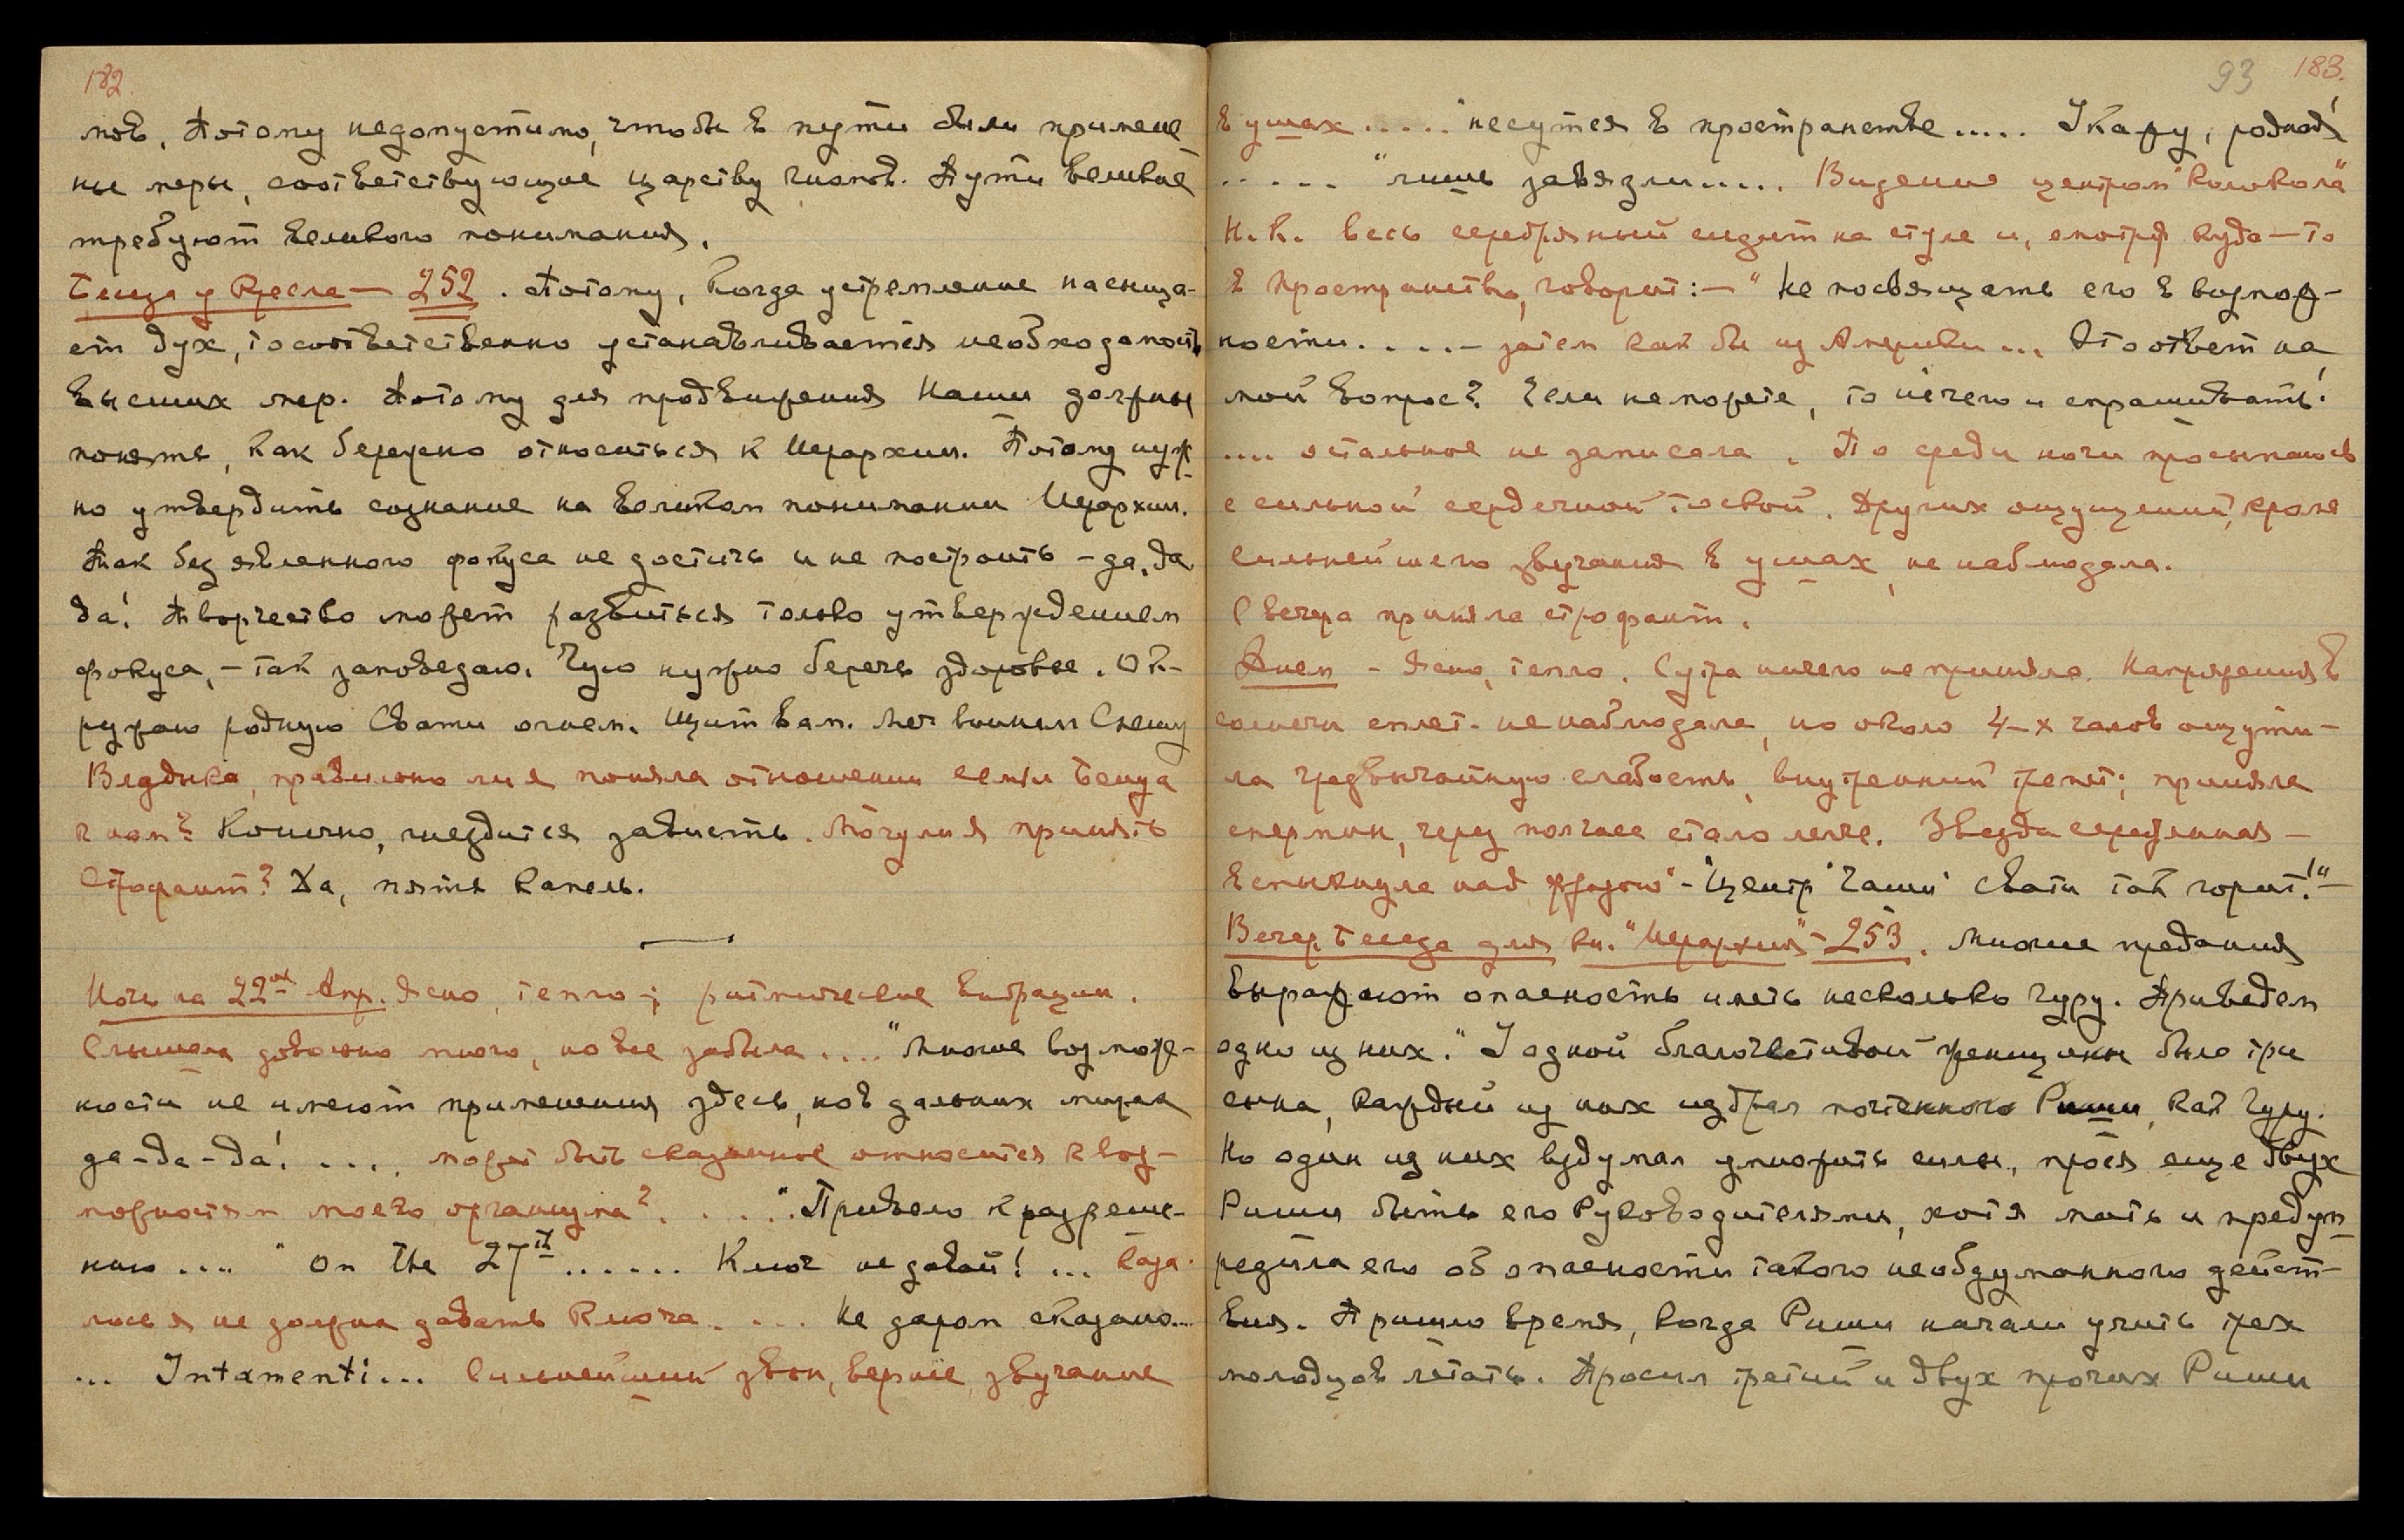 182.
мов. Потому недопустимо, чтобы в пути были примене-
ны меры, соответствующие царству гномов. Пути великие
требуют великого понимания.
Беседа у Кресла — 252. Потому, когда устремление насыща-
ет дух, то соответственно устанавливается необходимость
высших мер. Потому для продвижения Наши должны
понять, как бережно относиться к Иерархии. Потому нуж-
но утвердить сознание на великом понимании Иерархии.
Так без явленного фокуса не достичь и не построить – да, да,
да! Творчество может развиться только утверждением
фокуса, – так заповедаю. Чую нужно беречь здоровье. Ок-
ружаю родную Свати огнем. Щит вам. Меч воинам Снежу
Владыка, правильно ли я поняла отношении семьи Бенуа
к нам? Конечно, гнездится зависть. Могу ли я принять
Строфант? Да, пять капель.
Ночь на 22ое Апр. Ясно, тепло; ритмические вибрации.
Слышала довольно много, но все забыла .... "Многие возмож-
ности не имеют применения здесь, но в дальних мирах
да-да-да! .... может быть сказанное относится к воз-
можностям моего организма? ..... "Привело к разреше-
нию .... " On the 27th ...... Ключ не давай! ... каза-
лось я не должна давать Ключа. ... Не даром сказано...
... Intamenti... Сильнейший звон, вернее, звучание
93 183.
в ушах ..... "несутся в пространстве ..... Укажу, родной!
..... "лишь завязли ..... Видение центром "колокола"
Н.К. весь серебряный сидит на стуле и, смотря куда-то
в пространство, говорит: — "Не посвящать его в возмож-
ности ..... – затем как бы из Америки ... Это ответ на
мой вопрос? Если не можете, то нечего и спрашивать!
.... остальное не записала. По среди ночи просыпаюсь
с сильной сердечной тоской. Других ощущений, кроме
сильнейшего звучания в ушах, не наблюдала.
С вечера приняла строфант.
Днем – Ясно, тепло. С утра ничего не приняла. Напряжения в
солнечн сплет. не наблюдала, но около 4-х часов ощути-
ла чрезвычайную слабость, внутренний трепет; приняла
спермин, через полчаса стало легче. Звезда серебряная –
вспыхнула над фразою – "Центр "Чаши" Свати так горит!" –
Вечер. Беседа для кн. "Иерархия" – 253. Многие предания
выражают опасность иметь несколько Гуру. Приведем
одно из них. "У одной благочестивой женщины было три
сына, каждый из них избрал почтенного Риши, как Гуру.
Но один из них вздумал умножить силы, прося еще двух
Риши быть его Руководителями, хотя мать и предуп-
редила его об опасности такого необдуманного дейст-
вия. Пришло время, когда Риши начали учить трех
молодцов летать. Просил третий и двух прочих Риши